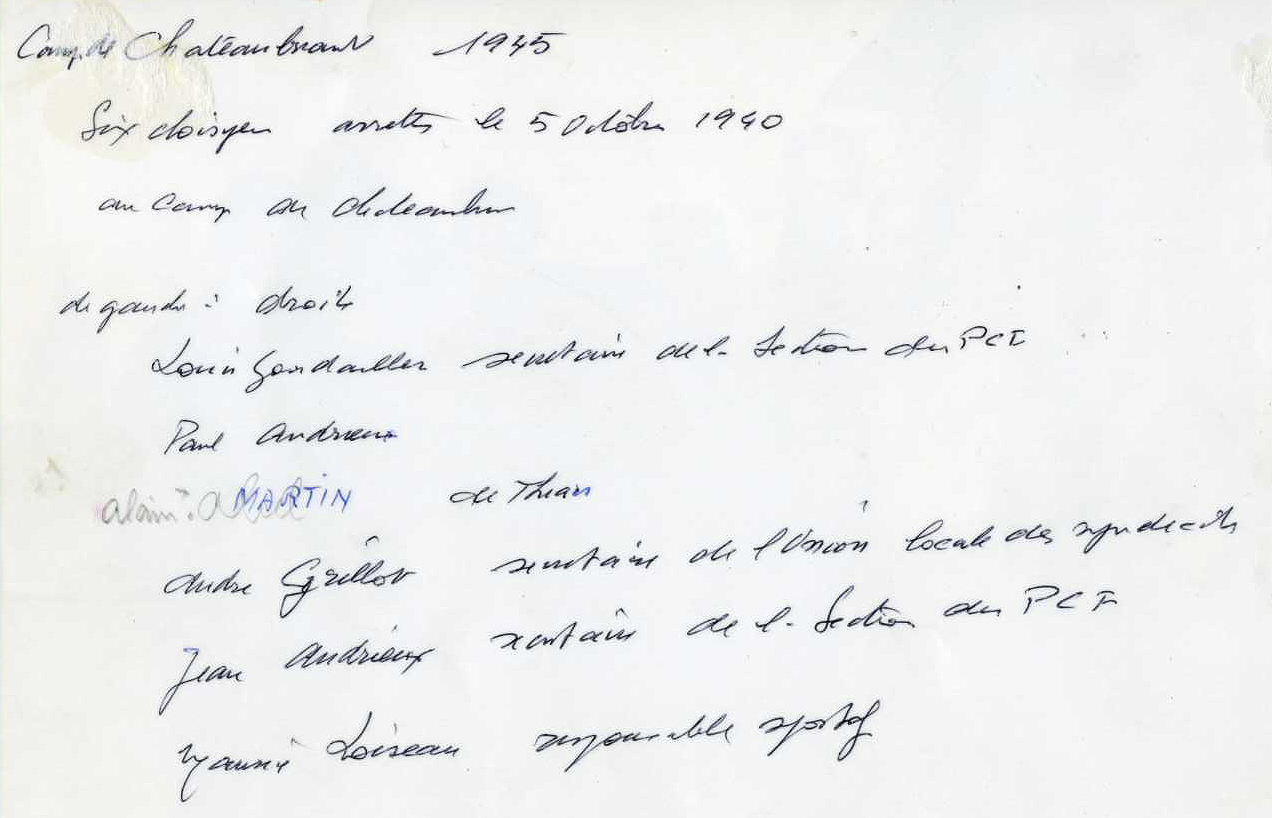 Camp de Chateaubriant 1945
Six choisyen arretés le 5 Octobre 1940
au Camp de Chateaubrian
de gauche à droite
Louis Gondailler secretaire de la Section du PCF
Paul Andrieux
alain? MARTIN de Thiais
André Grillot secretaire de l'Union locale des syndicats
Jean Andrieux secretaire de la Section du PCF
Maurice Loiseau responsable sportif